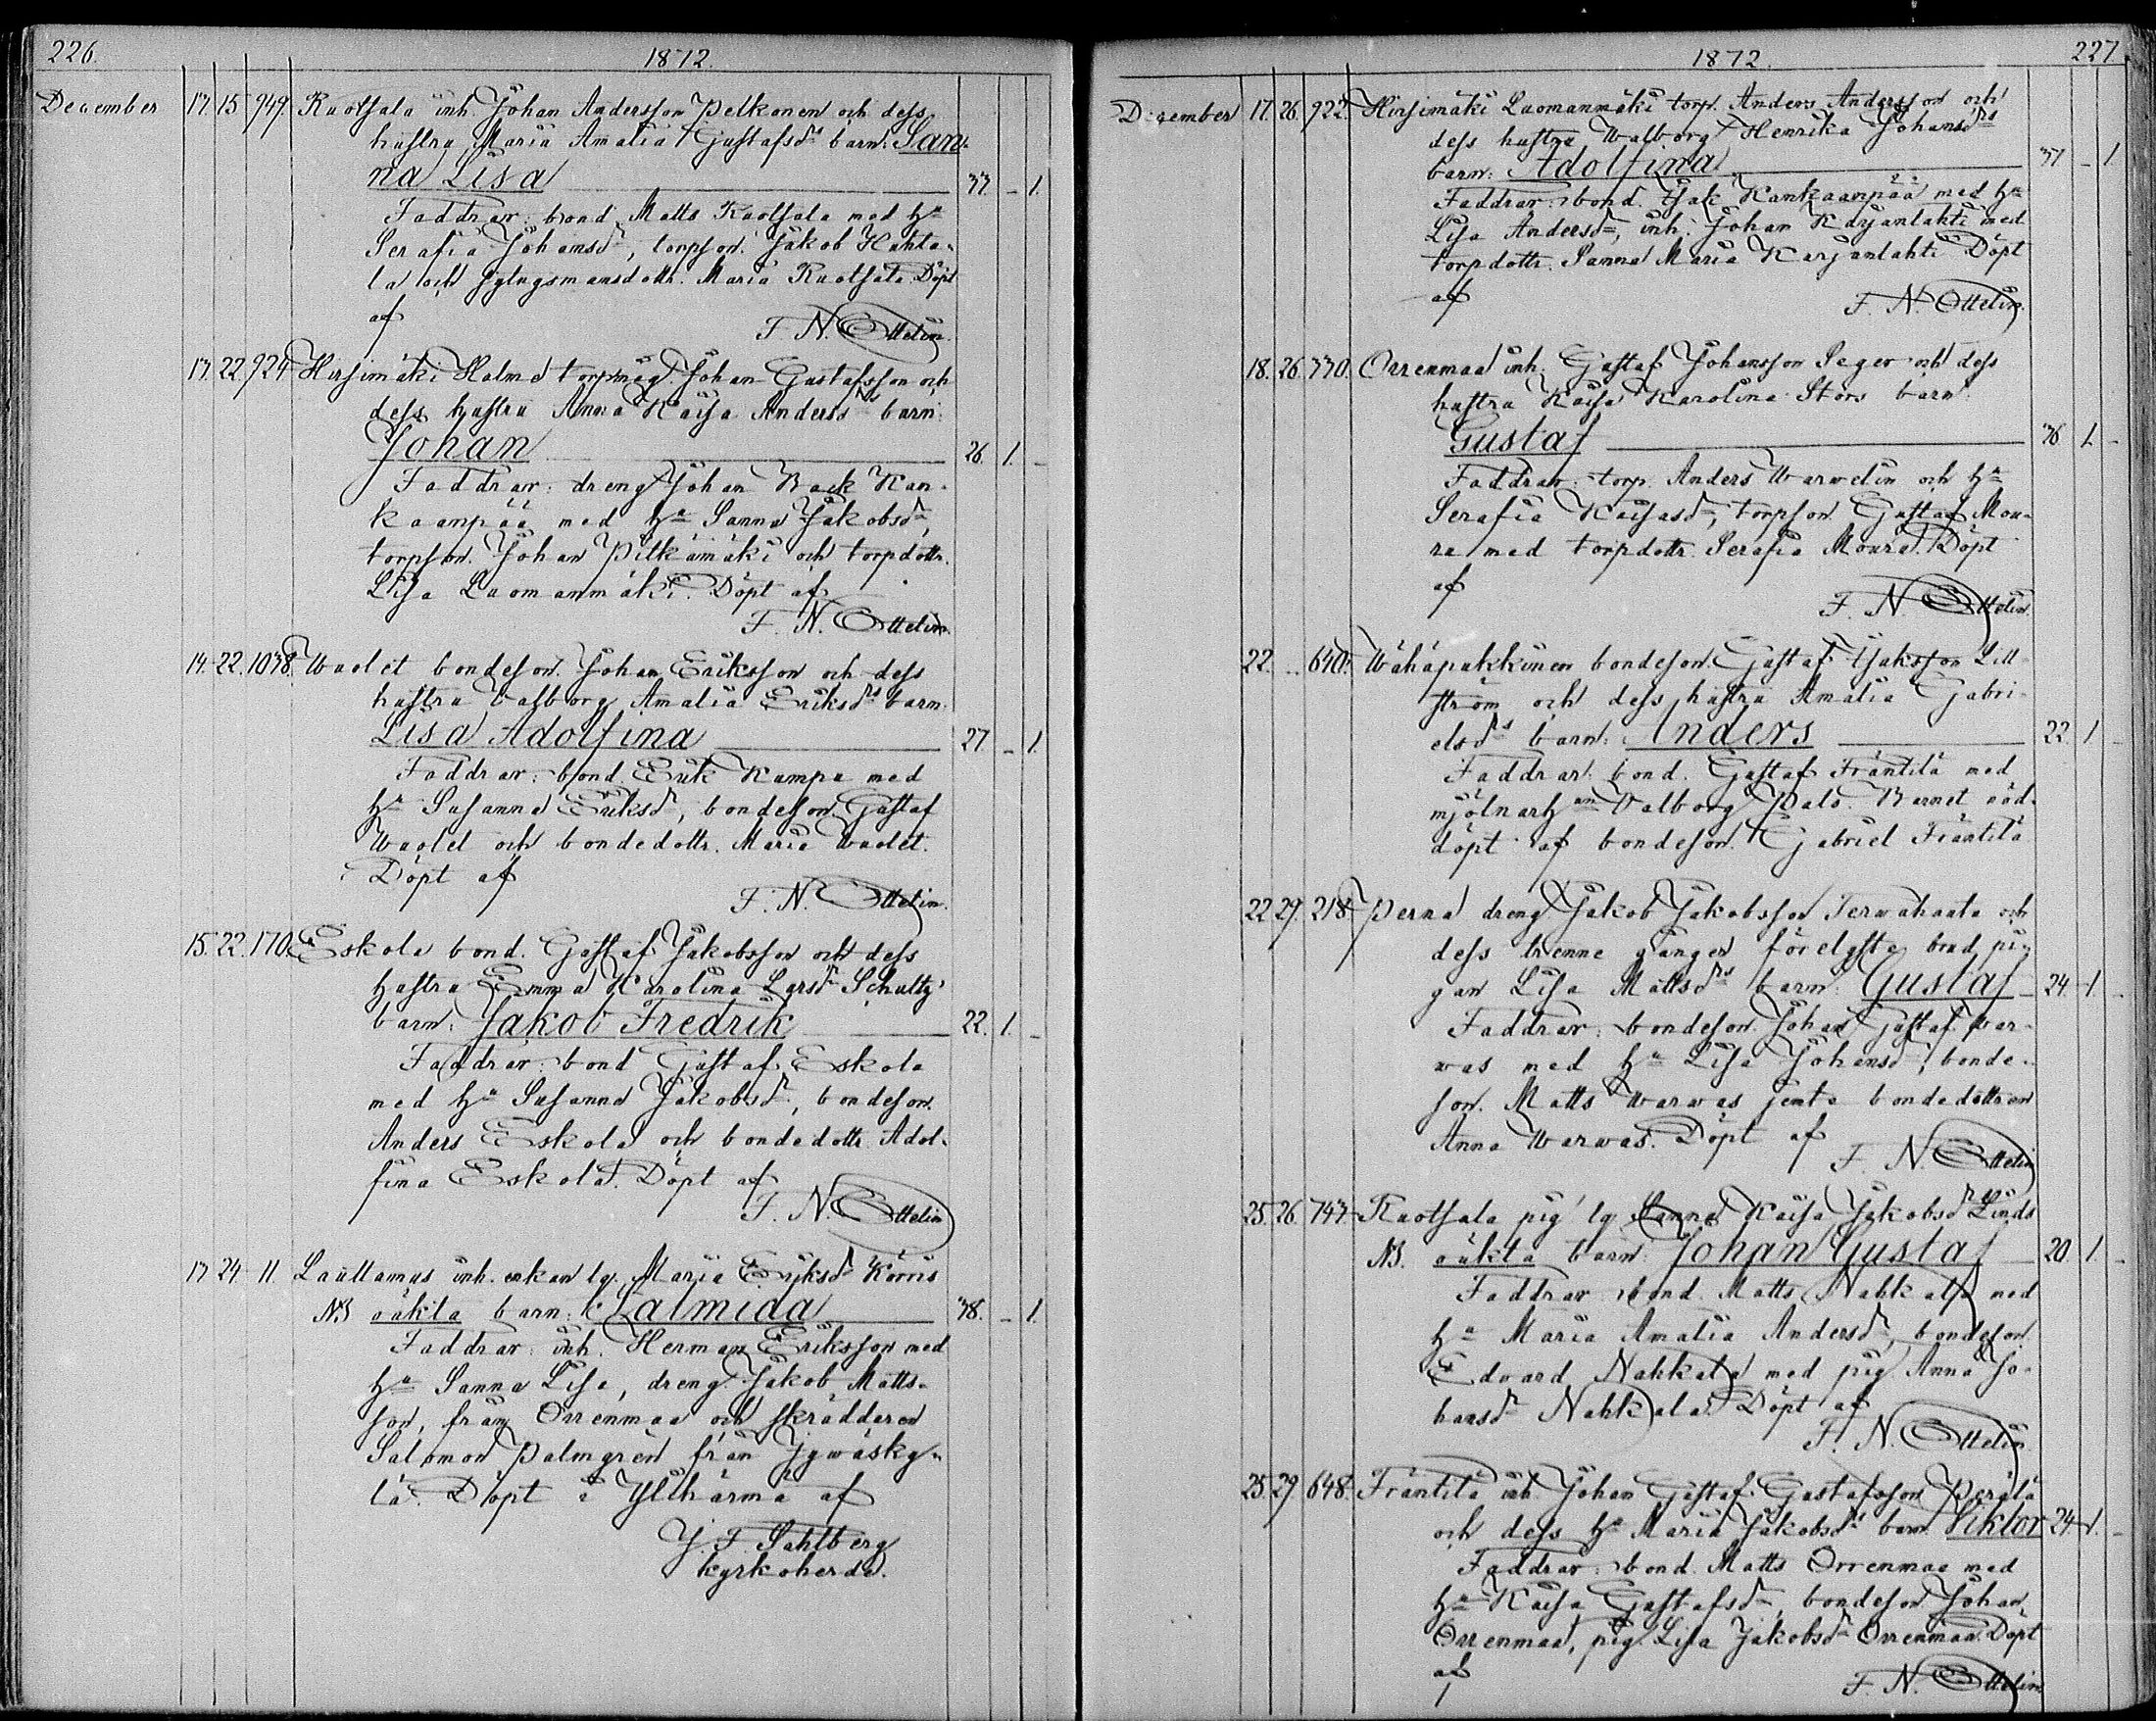 226.
1872.
December 17. 15 949. Ruotsala inh. Johan Andersson Pelkonen och dess
hustru Maria Amalia Gustafsdrs barn: San-
na Lisa 33 – 1.
Faddrar: bond. Matts Ruotsala med ha
Serafia Johansdr, torpson. Jakob Hahta-
la och ynglingsmansdottr. Maria Ruotsala. Döpt
af
F. N. Ottelin.
13. 22. 924 Hirsimäki Holma torpmåg. Johan Gustafsson och
dess hustru Anna Kaisa Andersdrs barn:
Johan 26. 1. –
Faddrar: dreng Johan Back Kan-
kaanpää med ha Sanna Jakobsdr,
torpson. Johan Pitkämäki och torpdottr.
Lisa Luomanmäki. Döpt af
F. N. Ottelin.
14. 22. 1038. Uudet bondeson. Johan Eriksson och dess
hustru Valborg Amalia Eriksdrs barn:
Lisa Adolfina 27 – 1.
Faddrar: bond. Erik Kampa med
ha Susanna Eriksdr, bondeson Gustaf
Uudet och bondedottr. Maria Uudet.
Döpt af
F. N. Ottelin.
15. 22. 170. Eskola bond. Gustaf Jakobsson och dess
hustru Emma Karolina Larsdr Schultz'
barn: Jakob Fredrik 22. 1. –
Faddrar: bond Gustaf Eskola
med ha Susanna Jakobsdr, bondeson.
Anders Eskola och bondedottr. Adol-
fina Eskola. Döpt af
F. N. Ottelin
17 24 11 Lauttamus inh. enkan lg. Maria Eriksdr Körris
NB oäkta barn: Salmida 38. – 1.
Faddrar: inh. Herman Eriksson med
ha Sanna Lisa, dreng. Jakob Matts-
son, från Orrenmaa och skräddaren
Salomon Palmgren från Jywäsky-
lä. Döpt i Ylihärmä af
J. F. Sahlberg
kyrkoherde.
1872.
227
December 17. 26. 922. Hirsimäki Luomanmäki torp. Anders Andersson och
dess hustru Walborg Henrika Johansdrs
barn: Adolfina 31 – 1
Faddrar: bond. Isak Kankaanpää med ha
Lisa Andersdr, inh. Johan Karjanlahti med
torpdottr. Sanna Maria Karjanlahti Döpt
af
F. N. Ottelin.
18. 26. 330. Orrenmaa inh. Gustaf Johansson Seger och dess
hustru Kaisa Karolina Stors barn
Gustaf 36 1. –
Faddrar: torp. Anders Warwelin och ha
Serafia Kaisasdr, torpson Gustaf Mou-
ra med torpdottr. Serafia Moura. Döpt
af
F. N Ottelin.
22. .. 640. Wähäpakkinen bondeson Gustaf Isaksson Lill-
ström och dess hustru Amalia Gabri-
elsdrs barn: Anders 22. 1. –
Faddrar: bond. Gustaf Fräntilä med
mjölnarhan Valborg Palo. Barnet nöd-
döpt af bondeson. Gabriel Fräntilä
22 29. 218. Perna dreng Jakob Jakobsson Terwahauta och
dess trenne gånger förelyste brud pi-
gan Lisa Mattsdrs barn: Gustaf 24. 1. –
Faddrar: bondeson Johan Gustaf War-
was med ha Lisa Johansdr, bonde-
son. Matts Warwas jemte bondedottren
Anna Warwas. Döpt af
F. N. Ottelin
25. 26. 743. Ruotsala pig' lg Sanna Kaisa Jakobsdr Linds
NB. oäkta barn: Johan Gustaf 20. 1. –
Faddrar bond. Matts Nahkala med
ha Maria Amalia Andersdr, bondeson.
Edvard Nahkala med pig. Anna Jo-
hansdr Nahkala. Döpt af
F. N. Ottelin
25. 29. 648. Fräntilä inh Johan Gustaf Gustafsson Perälä
och dess ha Maria Jakobsdrs barn. Viktor 24 1. –
Faddrar: bond. Matts Orrenmaa med
ha Kaisa Gustafsdr, bondeson Johan
Orrenmaa, pig. Lisa Jakobsdr Orrenmaa. Döpt
af
F. N. Ottelin